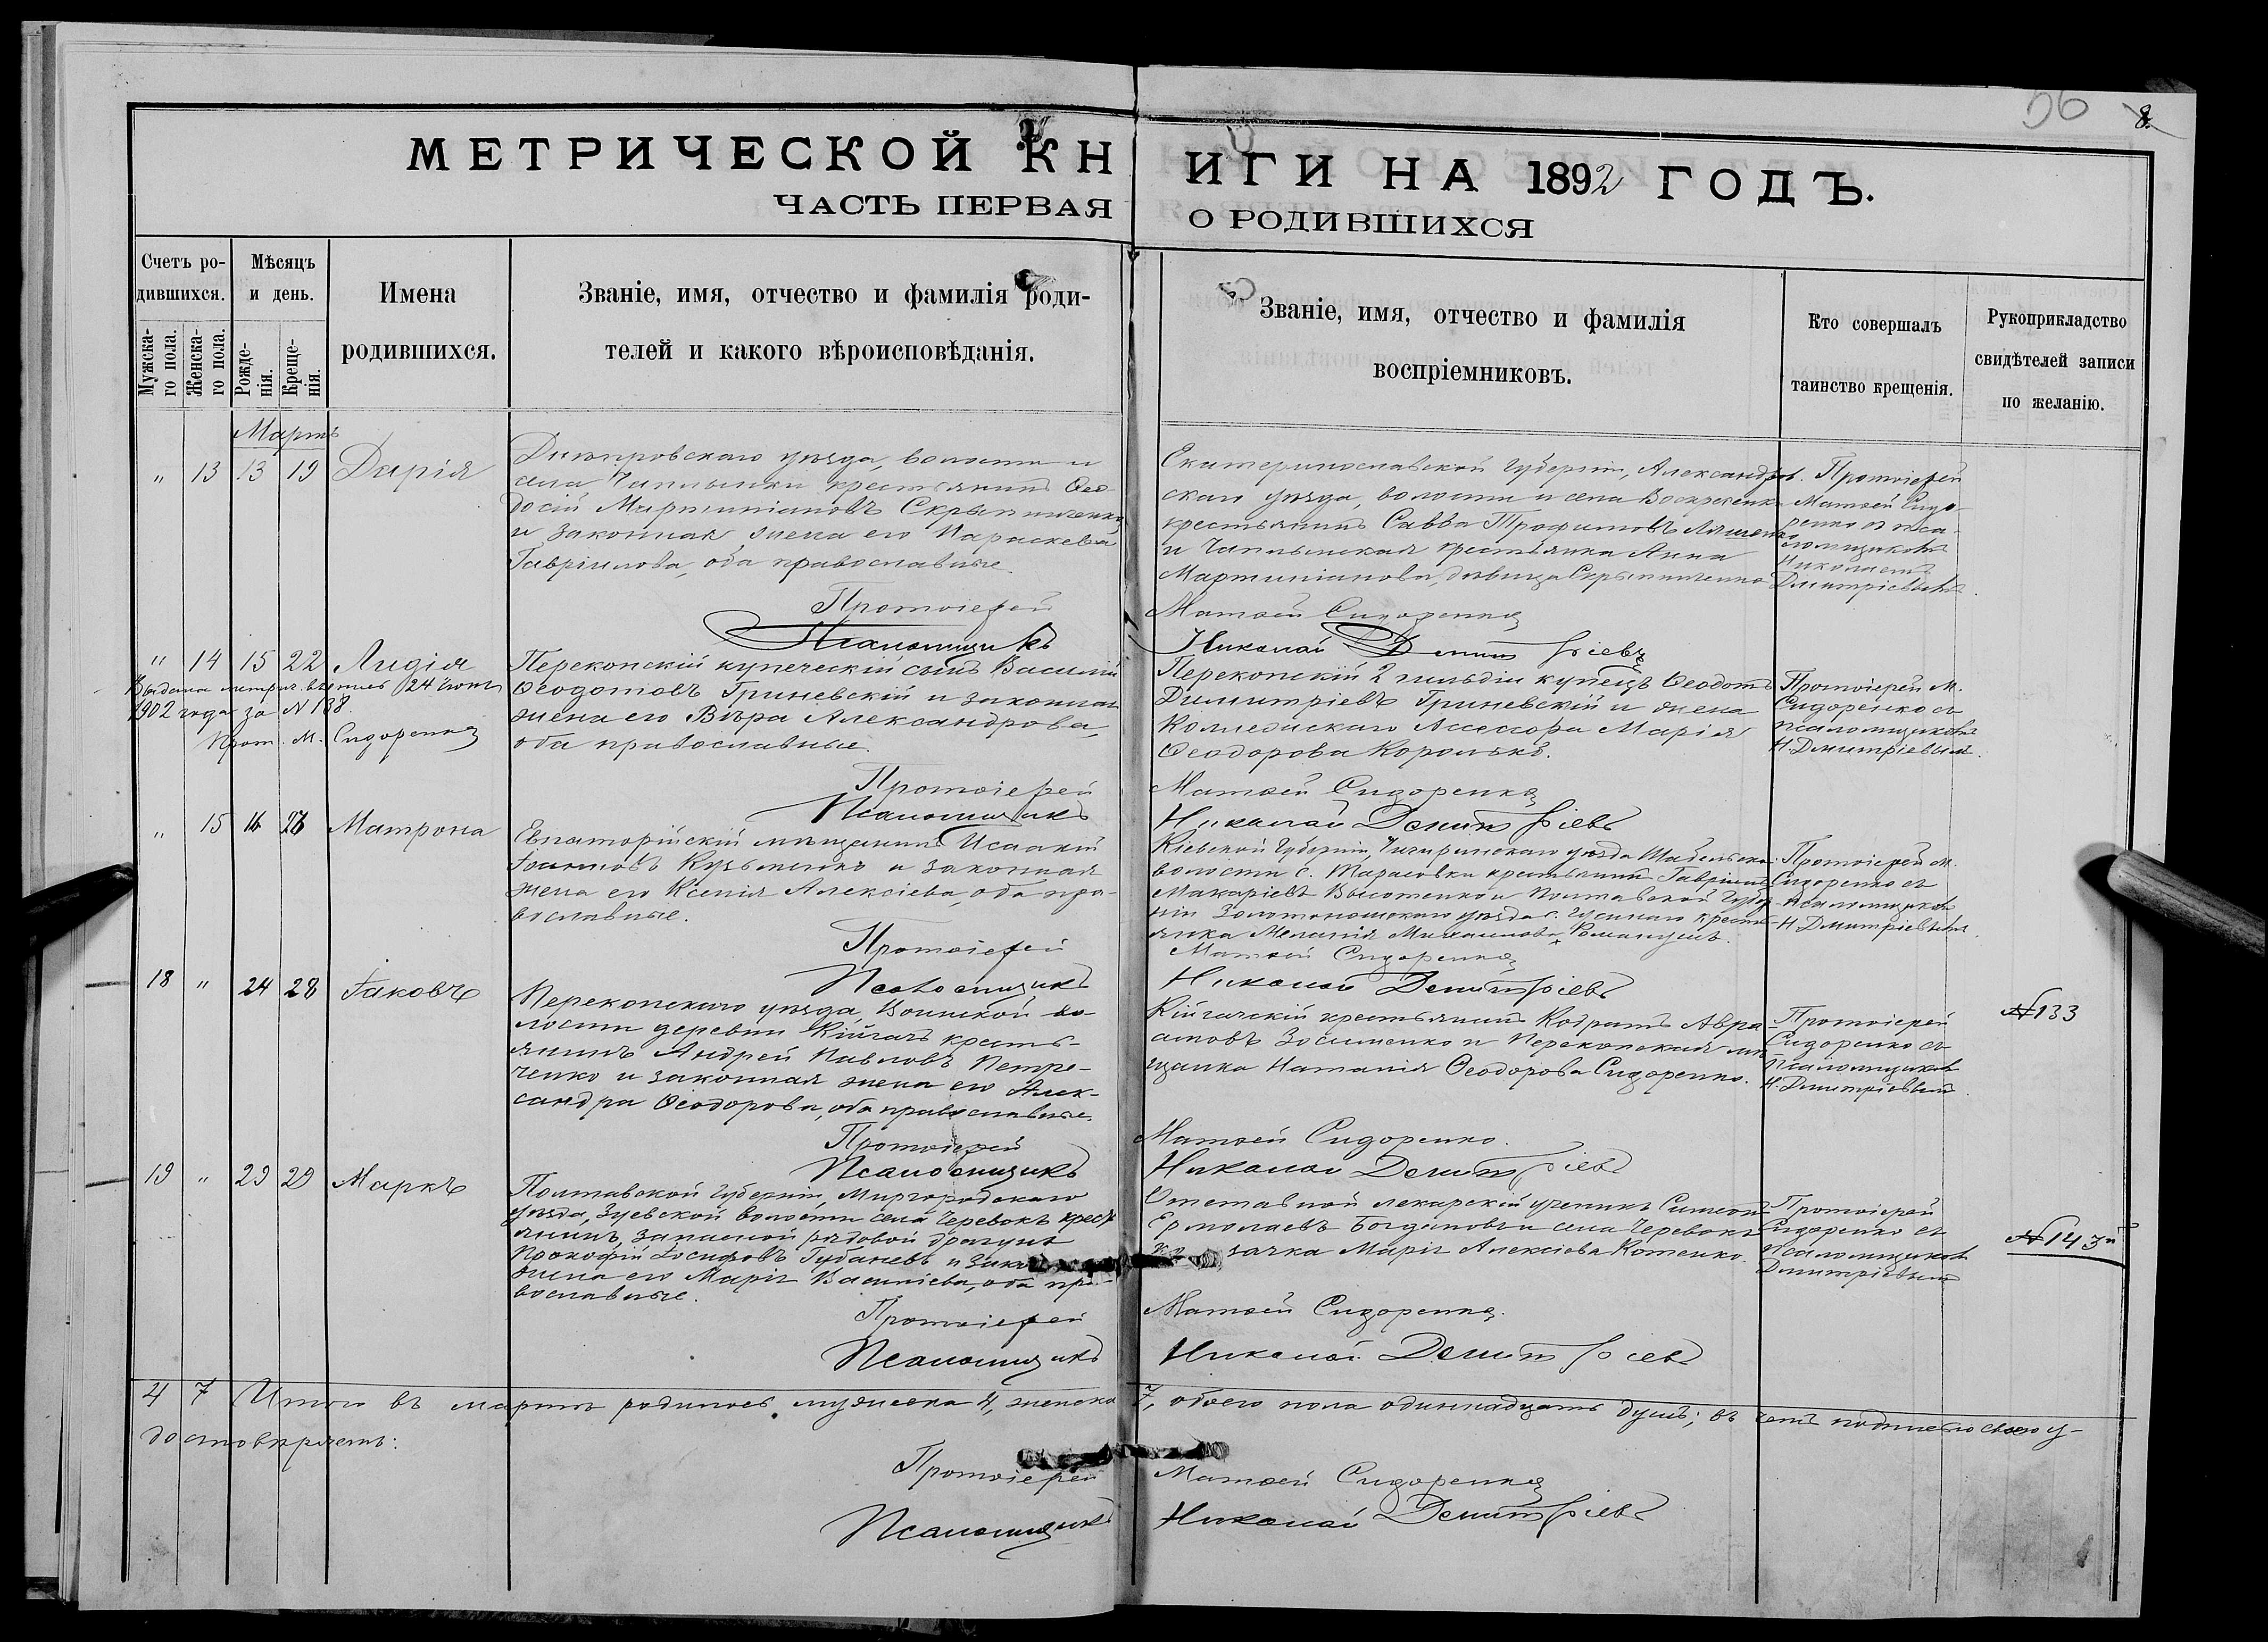 56 8.
МЕТРИЧЕСКОЙ КНИГИ НА 1892 ГОДЪ.
ЧАСТЬ ПЕРВАЯ О РОДИВШИХСЯ
Счетъ ро-
дившихся.
Мужска-
го пола.
Женска-
го пола.
Мѣсяцъ
и день.
Рожде-
нія.
Креще-
нія.
Имена
родившихся.
Званіе, имя, отчество и фамилія роди-
телей и какого вѣроисповѣданія.
Званіе, имя, отчество и фамилія
воспріемниковъ.
Кто совершалъ
таинство крещенія.
Рукоприкладство
свидѣтелей записи
по желанію.
Мартъ
" 13 13 19 Дарія
Днѣпровскаго уѣзда, волости и
села Чаплынки крестьянинъ Ѳео-
досій Мартиніановъ Скрыпниченко
и законная жена его Параскева
Гавріилова, оба православные.
Екатеринославской Губерніи, Александров-
скаго уѣзда, волости и села Воскресенки
крестьянинъ Савва Трофимовъ Ляшенко
и Чаплынская крестьянка Анна
Мартиніанова, дѣвица Скрыпниченко
Протоіерей
Матѳей Сидо-
ренко съ пса-
ломщикомъ
Николаемъ
Дмитріевымъ.
Протоіерей Матѳей Сидоренко
Псаломщикъ Николай Дмитріевъ
" 14 15 22 Лидія
Выдана метрич. выпись 24
1902 года за N 138.
Прот. М. Сидоренко
Перекопскій купеческій сынъ Василій
Ѳеодотовъ Гриневскій и законная
жена его Вѣра Александрова,
оба православные.
Перекопскій 2 гильдіи купецъ Ѳеодотъ
Димитріевъ Гриневскій и жена
Коллежскаго Ассесора Марія
Ѳеодорова Королькъ.
Протоіерей М.
Сидоренко съ
псаломщикомъ
Н. Дмитріевымъ.
Протоіерей Матѳей Сидоренко
Псаломщикъ Николай Дмитріевъ
" 15 Матрона
Евпаторійскій мѣщанинъ Исаакій
Іоанновъ Кузьменко и законная
жена его Ксенія Алексіева, оба пра-
вославные.
Кіевской Губерніи, Чигиринскаго уѣзда
волости с. Тарасовки крестьянинъ Гавріилъ
Макаріевъ Высоченко и Полтавской Губер-
ніи Золотоношскаго уѣзда с. крестья-
янка Меланія Михаилова
Протоіерей М.
Сидоренко съ
псаломщикомъ
Н. Дмитріевымъ.
Протоіерей Матѳей Сидоренко
Псаломщикъ Николай Дмитріевъ
18 " 24 28 Іаковъ
Перекопскаго уѣзда, Воинской во-
лости деревни Кійгачъ кресть-
янинъ Андрей Павловъ Петре-
ченко и законная жена его Алек-
сандра Ѳеодорова, оба православные.
Кійгачскій крестьянинъ Кодратъ Авра-
амовъ Зосименко и Перекопская мѣ-
щанка Наталія Ѳеодорова Сидоренко.
Протоіерей
Сидоренко съ
псаломщикомъ
Н. Дмитріевымъ.
N133
Протоіерей Матѳей Сидоренко.
Псаломщикъ Николай Дмитріевъ
19 " 29 29 Маркъ
Полтавской Губерніи, Миргородскаго
уѣзда, Зуевской волости села Черевокъ крест
янинъ, запасной рядовой драгунъ
Прокофій Іосифовъ Губаневъ и
жена его Марія Василіева, оба пра-
вославные.
Отставной лекарскій ученикъ Симеонъ
Ермолаевъ Богдановъ и села Черевокъ
зачка Марія Алексіева Котенко.
Протоіерей
Сидоренко съ
псаломщикомъ
Дмитріевымъ
N143
Протоіерей Матѳей Сидоренко.
Псаломщикъ Николай Дмитріевъ
4 7 Итого въ мартѣ родилось мужеска 4, женска 7, обоего пола одиннадцать душъ; въ чемъ подписью своею у-
достовѣряемъ:
Протоіерей Матѳей Сидоренко
Псаломщикъ Николай Дмитріевъ